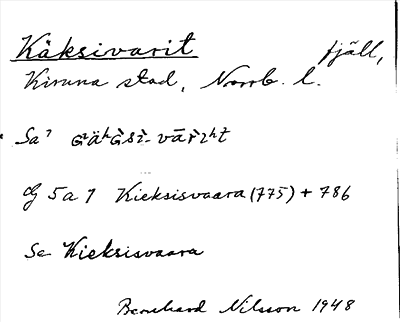 Käksivarit fjäll,
Kiruna stad, Norrb. l.
Sa?
5 a 1 Kieksisvaara (775) + 786
Se Kieksisvaara
Bernhard Nilsson 1948